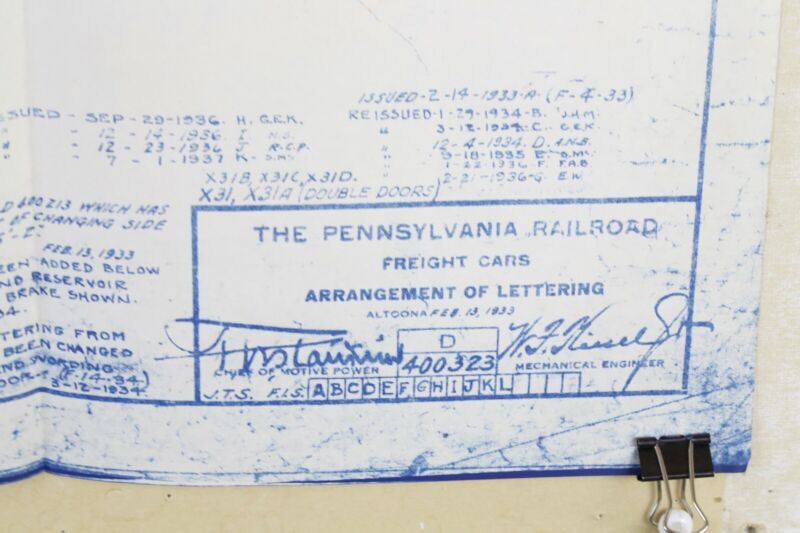 ISSUED-2-14-1933-A (F-4-33)
ISSUED - SEP-29-1936. H. G.E.K.
REISSUED-1-29-1934-B. J.H.M.
" 12-14-1936. I
" 3-12-1934-C. G.E.K.
" 12-23-1936 J R.C.P.
" 12-4-1934. D. A.N.B.
" 7-1-1937 K-S.MS
" 9-18-1935 E. S.MS
" 1-22-1936 F. F.A.B.
X31B, X31C, X31D.
" 2-21-1936-G. E.W.
X31, X31A (DOUBLE DOORS)
D 400213 WHICH HAS
OF CHANGING SIDE
FEB. 13, 1933
EEN ADDED BELOW
ND RESERVOIR
BRAKE SHOWN.
34.
TERING FROM
BEEN CHANGED
ND WORDING
DOOR. (F-4-34)
3-12-1934
THE PENNSYLVANIA RAILROAD
FREIGHT CARS
ARRANGEMENT OF LETTERING
ALTOONA FEB. 13, 1933
CHIEF OF MOTIVE POWER
D
400323
W. F. Kiesel Jr
MECHANICAL ENGINEER
J.T.S. F.I.S. A B C D E F G H I J K L